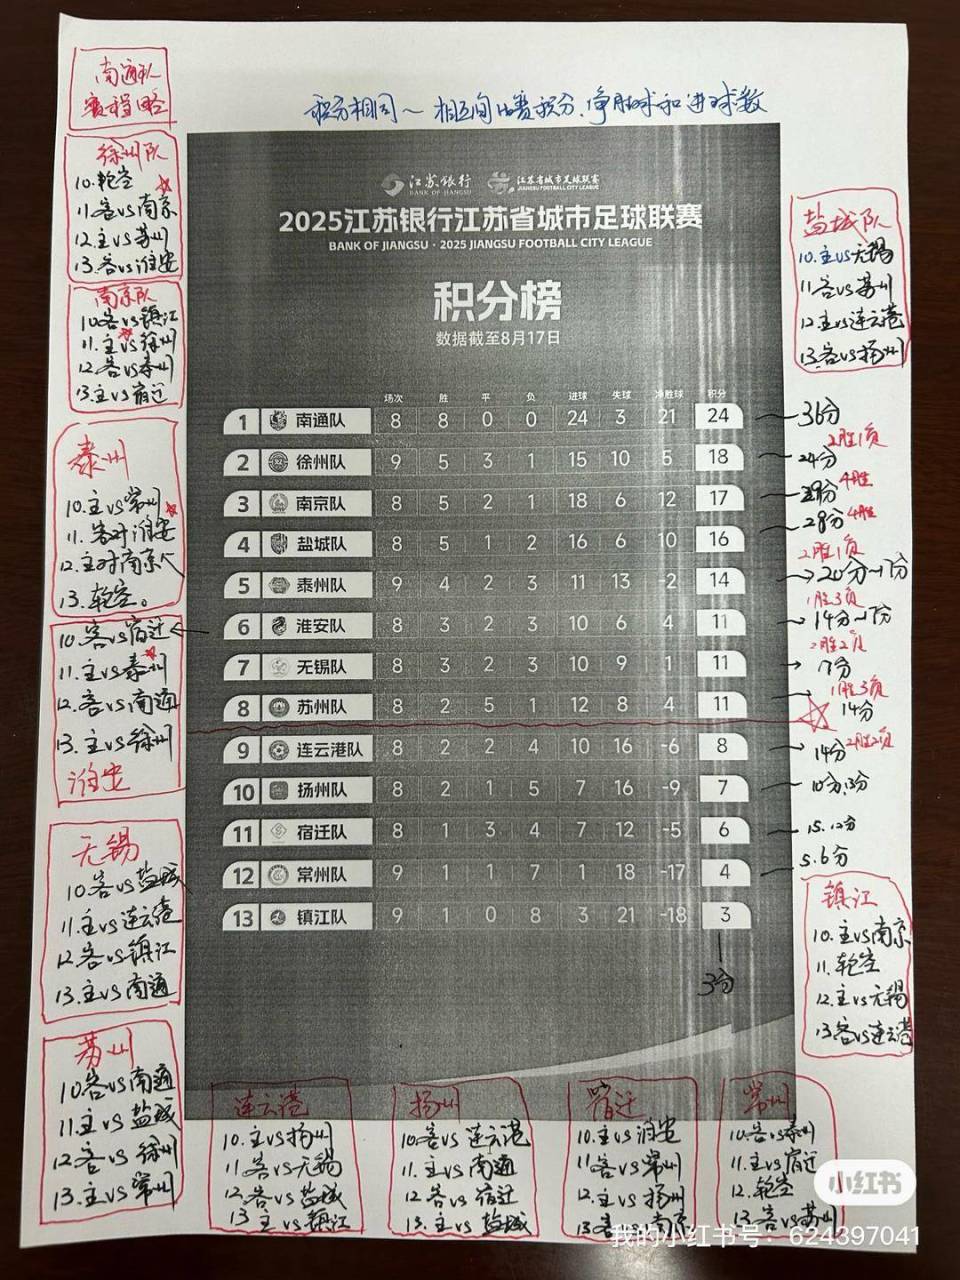 南通队
赛程略
积分相同～相互间比赛积分、净胜球和进球数
徐州队
10.轮空
11.客vs南京
12.主vs苏州
13.客vs淮安
南京队
10.客vs镇江
11.主vs徐州
12.客vs泰州
13.主vs宿迁
泰州
10.主vs常州
11.客对淮安
12.主对南京
13.轮空。
10.客vs宿迁
11.主vs泰州
12.客vs南通
13.主vs徐州
淮安
无锡
10.客vs盐城
11.主vs连云港
12.客vs镇江
13.主vs南通
苏州
10.客vs南通
11.主vs盐城
12.客vs徐州
13.主vs常州
江苏银行
BANK OF JIANGSU
江苏省城市足球联赛
JIANGSU FOOTBALL CITY LEAGUE
2025江苏银行江苏省城市足球联赛
BANK OF JIANGSU · 2025 JIANGSU FOOTBALL CITY LEAGUE
积分榜
数据截至8月17日
场次 胜 平 负 进球 失球 净胜球 积分
1 南通队 8 8 0 0 24 3 21 24
2 徐州队 9 5 3 1 15 10 5 18
3 南京队 8 5 2 1 18 6 12 17
4 盐城队 8 5 1 2 16 6 10 16
5 泰州队 9 4 2 3 11 13 -2 14
6 淮安队 8 3 2 3 10 6 4 11
7 无锡队 8 3 2 3 10 9 1 11
8 苏州队 8 2 5 1 12 8 4 11
9 连云港队 8 2 2 4 10 16 -6 8
10 扬州队 8 2 1 5 7 16 -9 7
11 宿迁队 8 1 3 4 7 12 -5 6
12 常州队 9 1 1 7 1 18 -17 4
13 镇江队 9 1 0 8 3 21 -18 3
盐城队
10.主vs无锡
11.客vs苏州
12.主vs连云港
13.客vs扬州
36分
2胜1负
24分
29分 4胜
28分 4胜
2胜1负
20分~17分
1胜3负
14分~17分
2胜2负
17分
1胜3负
14分
14分 2胜2负
10分.13分
15.12分
5.6分
3分
镇江
10.主vs南京
11.轮空
12.主vs无锡
13客vs连云港
连云港
10.主vs扬州
11客vs无锡
12.客vs盐城
13.主vs镇江
扬州
10.客vs连云港
11.主vs南通
12客vs宿迁
13.主vs盐城
宿迁
10.主vs淮安
11客vs常州
12.主vs扬州
13.客vs南京
常州
10.客vs泰州
11.主vs宿迁
12.轮空
13.客vs苏州
小红书
我的小红书号：624397041